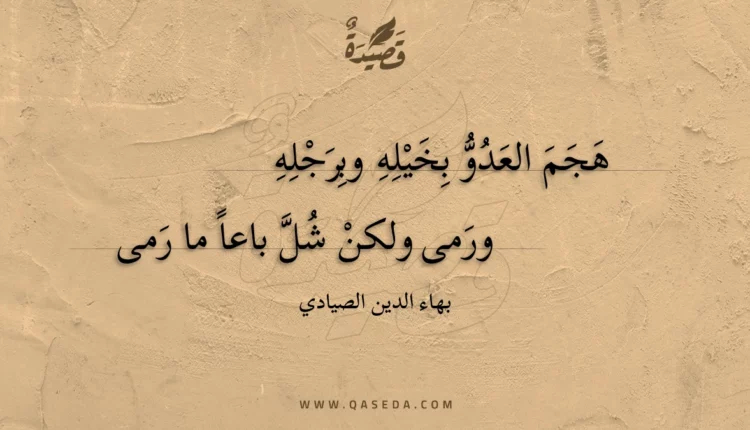 قَصِيْدَةٌ
هَجَمَ العَدُوُّ بِخَيْلِهِ وبِرَجْلِهِ
ورَمى ولكنْ شُلَّ باعاً ما رَمى
بهاء الدين الصيادي
WWW.QASEDA.COM